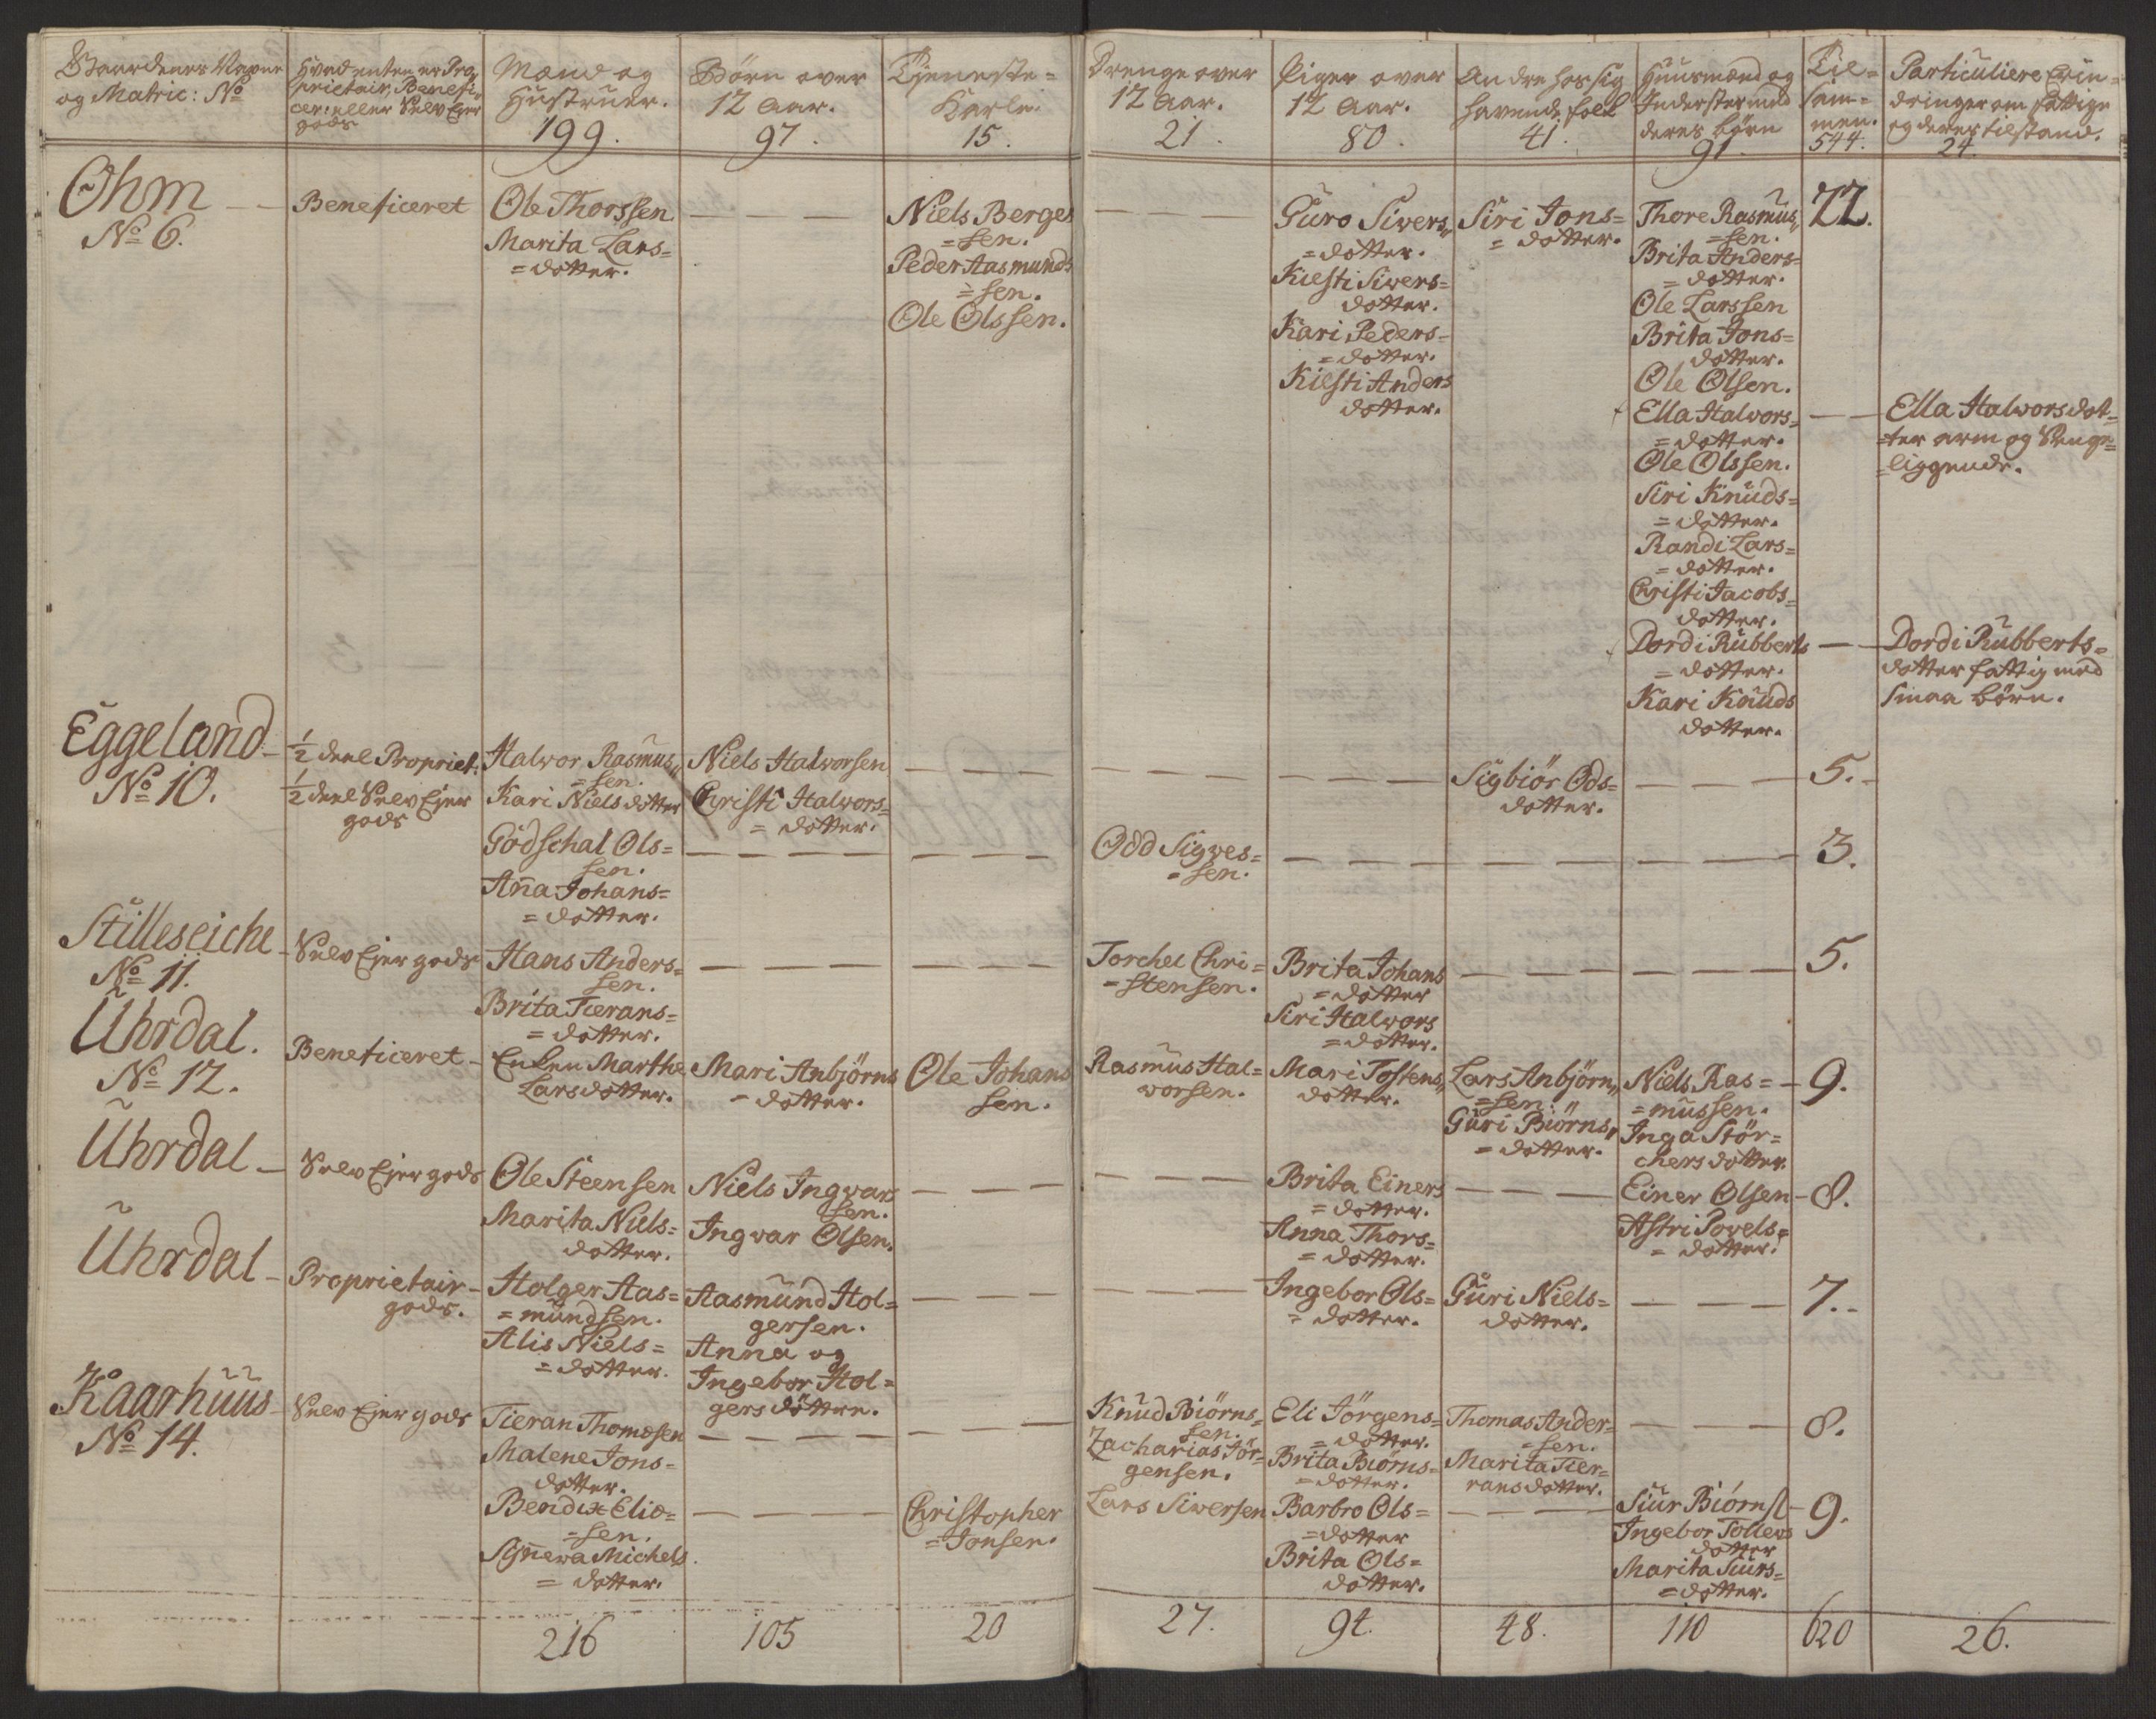 Gaardenes Navne og Matric: No | Hvad enten er Pro-prietair, Benefi-cer: eller Selv Ejer gods | Mænd og Hustruer. 199. | Börn over 12 Aar. 97. | Tjeneste-Karle. 15. | Drenge over 12 Aar. 21. | Piger over 12 Aar. 80. | Andre hos sig havende folk 41. | Huusmænd og Inderster med deres börn 91. | Til-sam-men. 544. | Particuliere Erin-dringer om fattige og deres tilstand. 24.
Ohm
No 6.
Beneficeret
Ole Thorssen
Marita Lars=
=dotter.
Niels Berges
=sen.
Peder Aasmunds
=sen.
Ole Olssen.
Guro Sivers„
=dotter.
Kiesti Sivers=
dotter.
Kari Peders=
=dotter.
Kiesti Anders
dotter.
Siri Jons=
=dotter.
Thore Rasmus„
=sen.
Brita Anders=
=dotter.
Ole Larssen
Brita Jons=
dotter.
Ole Olsen.
Ella Halvors=
=dotter.
Ole Olssen.
Siri Knuds=
=dotter.
Randi Lars=
=dotter.
Christi Jacobs=
dotter.
Dordi Rubberts
=dotter.
Kari Knuds
dotter.
22.
Ella Halvorsdot=
=ter arm og Senge=
=liggende.
Dordi Rubberts=
dotter fattig med
smaa börn.
Eggeland
No 10.
½ deel Propriet:
½ deel Selv Ejer
gods
Halvor Rasmus„
=sen.
Kari Nielsdotter
Niels Halvorsen
Christi Halvors=
=dotter.
Sigbiör Ods=
dotter.
5.
Godschal Ols=
sen.
Anna Johans=
=dotter.
Odd Sigves=
=sen.
3.
Stilleseiche
No 11.
Selv Ejer gods
Hans Anders=
sen.
Brita Tierans=
=dotter.
Torchel Chri=
=stensen.
Brita Johans
=dotter
Siri Halvors
=dotter.
5.
Uhrdal.
No 12.
Beneficeret
Enken Marthe
Larsdotter.
Mari Anbjörns
=dotter.
Ole Johans
sen.
Rasmus Hal=
vorsen.
Mari Tostens„
dotter.
Lars Anbjörn„
=sen.
Guri Biörns„
=dotter.
Niels Ras=
=mussen.
Inga Stör=
chersdotter.
9.
Uhrdal
Selv Ejer gods
Ole Steensen
Marita Niels=
dotter.
Niels Ingvars
sen.
Ingvar Olsen.
Brita Einers
=dotter.
Anna Thors=
=dotter.
Einer Olsen
Astri Povels=
=dotter.
8.
Uhrdal
Proprietair
gods.
Holger Aas=
=mundsen.
Alis Niels=
=dotter.
Aasmund Hol=
gersen.
Anna og
Ingebor Hol=
gersdöttre.
Ingebor Ols=
=dotter.
Guri Niels=
dotter.
7.
Kaarhuus
No 14.
Selv Ejer gods
Tieran Thomesen
Malene Jons=
dotter.
Knud Biörns=
sen.
Zacharias Jör=
gensen.
Eli Jörgens=
=dotter.
Brita Biörns=
=dotter.
Thomas Ander=
=sen.
Marita Tier=
ransdotter.
8.
Bendix Elie=
=sen.
Synneva Michels
=dotter.
Christopher
=Jonsen.
Lars Siversen
Barbro Ols=
=dotter
Brita Ols=
dotter.
Siur Biörns
Ingebor Tollevs
dotter
Marita Siurs=
=dotter.
9.
216 105 20 27. 94. 48. 110 620 26.